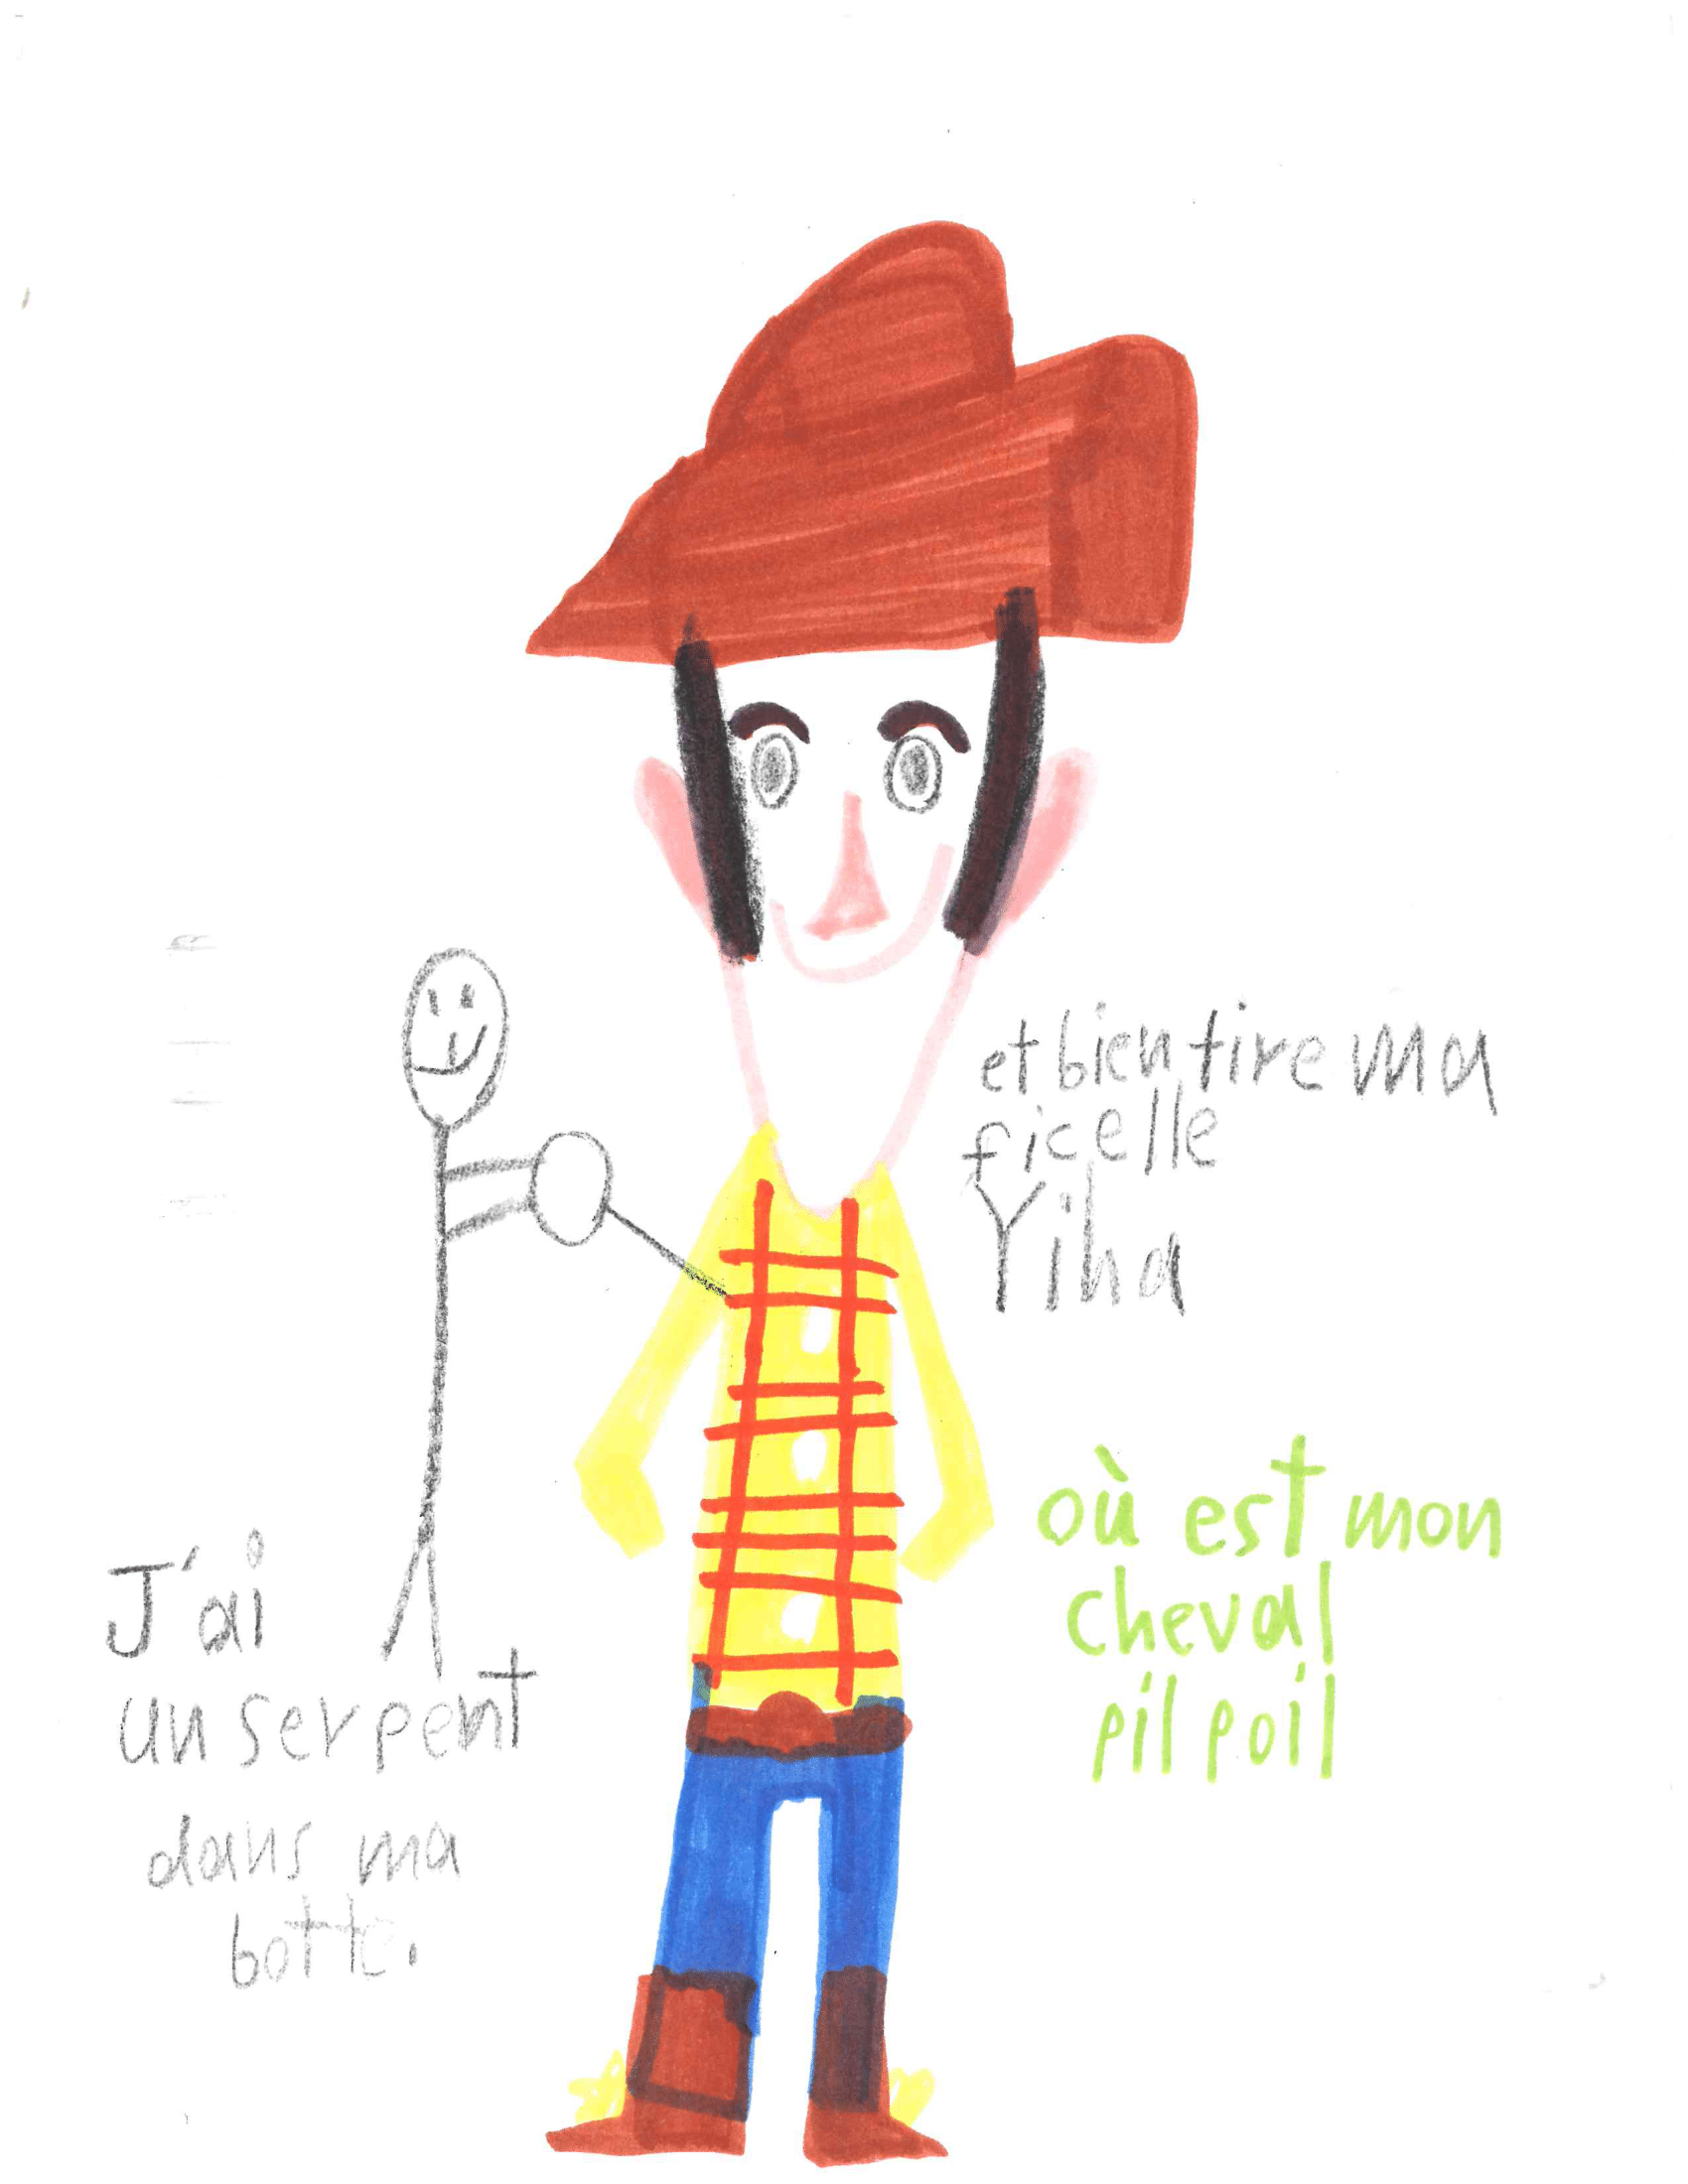 et bien tire ma
ficelle
Yiha
où est mon
cheval
pil poil
J'ai
un serpent
dans ma
botte.